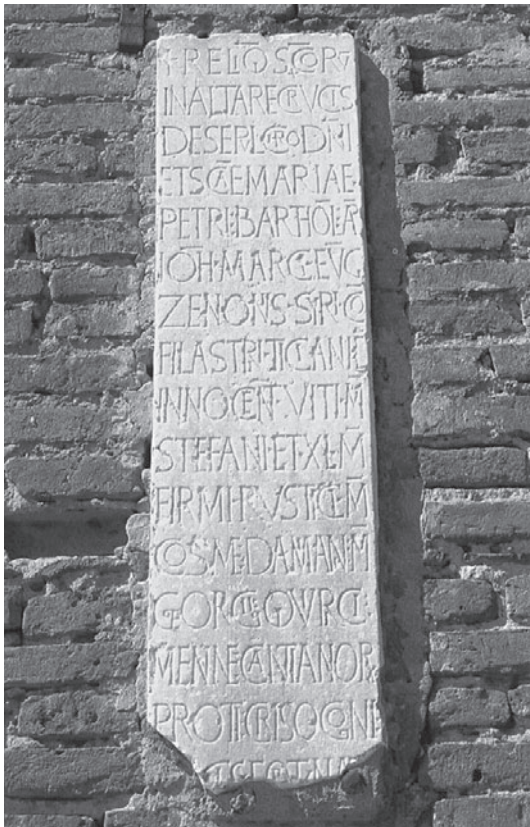 + RELIQ SCOR
IN ALTARE CRUCIS
DE SEPVLCRO DNI
ET SCAE MARIAE
PETRI BARTHOL
IOH MARCI EVG
ZENONIS SIRI
FILASTRI TICIANI
INNOCEN VITI M
STEFANI ET XL M
FIRMI RVSTICI M
COSME DAMIAN M
GORGI GVRCI
MENNE CANTIANOR
PROTI CRISOGONI